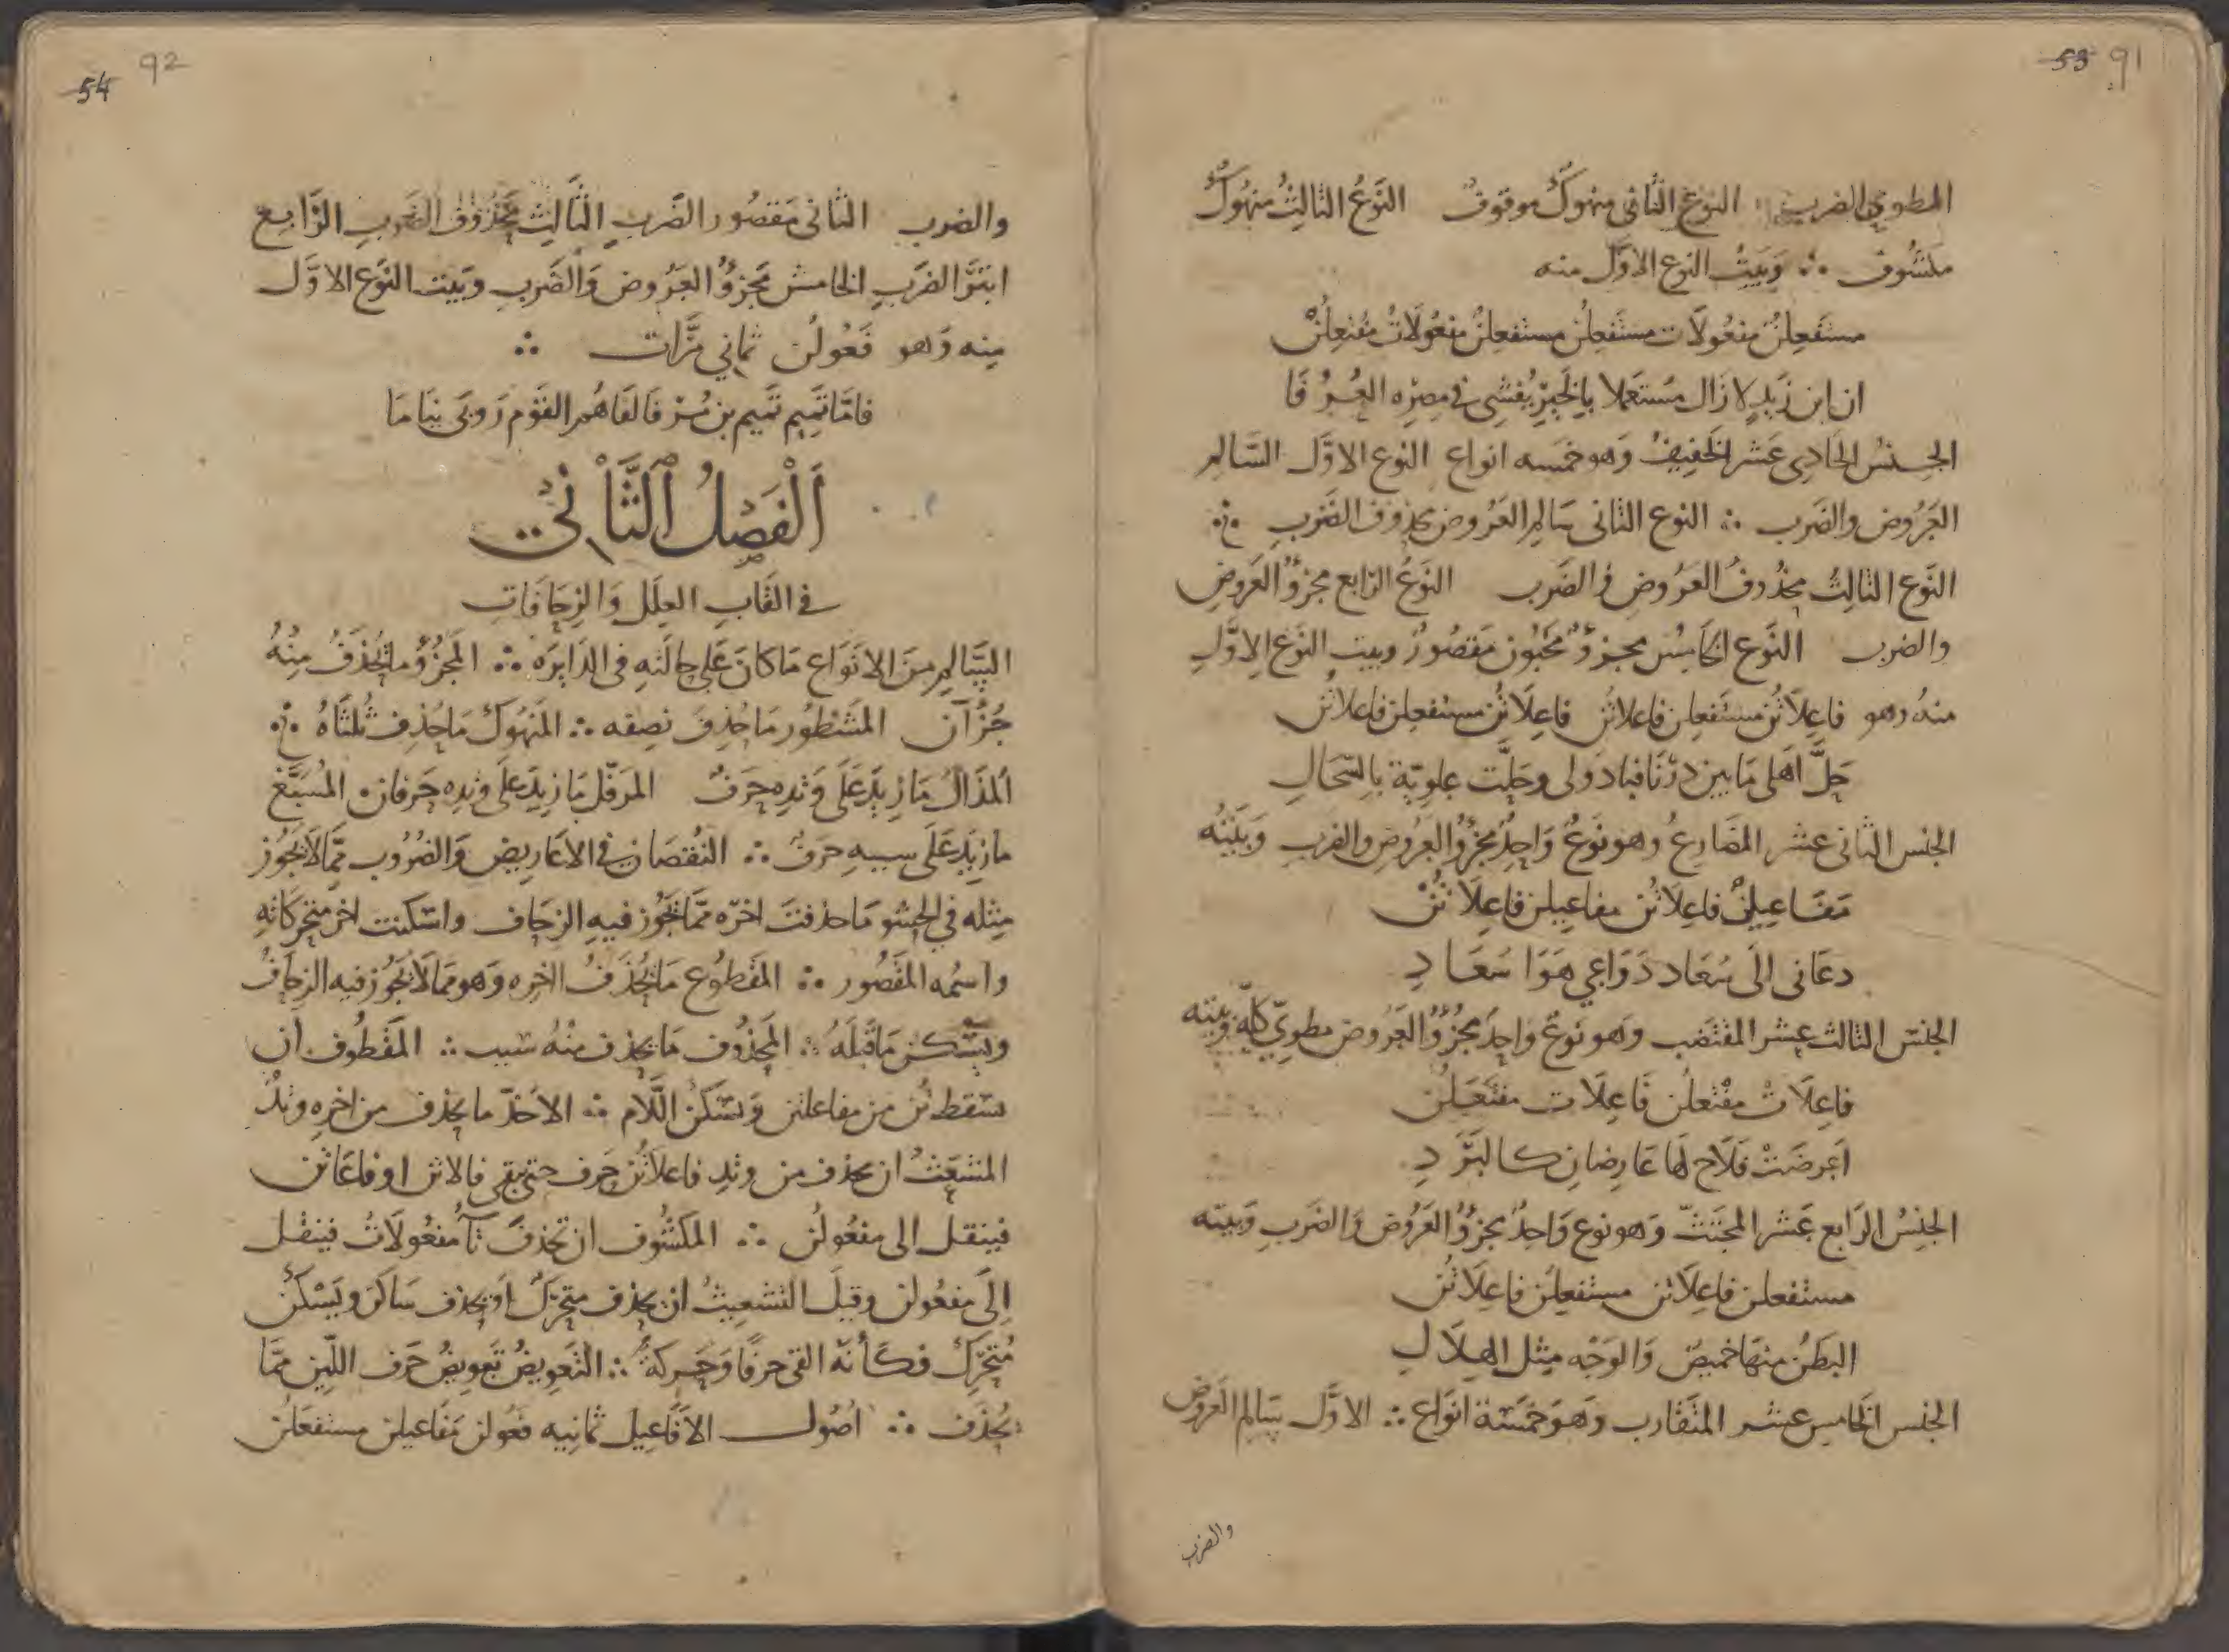 53 91
المطوي الضرب النوع الثاني منهوك موقوف النوع الثالث منهوك
مكشوف ∴ وبيت النوع الاول منه
مستفعلن مفعولات مستفعلن مستفعلن مفعولات مفتعلن
ان ابن زيد لا زال مستعملا بالخير يفشي في مصره العرفا
الجنس الحادي عشر الخفيف وهو خمسه انواع النوع الاول السالم
العروض والضرب ∴ النوع الثاني سالم العروض محذوف الضرب ∴
النوع الثالث محذوف العروض والضرب النوع الرابع مجزوّ العروض
والضرب النوع الخامس مجزوّ مخبون مقصور وبيت النوع الاول
منه وهو فاعلاتن مستفعلن فاعلاتن فاعلاتن مستفعلن فاعلاتن
حلّ اهلي ما بين درنا فبادولى وحلّت علويّة بالسخال
الجنس الثاني عشر المضارع وهو نوع واحد مجزوّ العروض والضرب وبيته
مفاعيلن فاعلاتن مفاعيلن فاعلاتن
دعاني الى سعاد دواعي هوا سعاد
الجنس الثالث عشر المقتضب وهو نوع واحد مجزوّ العروض مطويّ كله وبيته
فاعلات مفتعلن فاعلات مفتعلن
اعرضت فلاح لها عارضان كالبرد
الجنس الرابع عشر المجتثّ وهو نوع واحد مجزوّ العروض والضرب وبيته
مستفعلن فاعلاتن مستفعلن فاعلاتن
البطن منها خميص والوجه مثل الهلال
الجنس الخامس عشر المتقارب وهو خمسة انواع ∴ الاول سالم العروض
والضرب
54 92
والضرب الثاني مقصور الضرب الثالث محذوف الضرب الرابع
ابتر الضرب الخامش مجزوّ العروض والضرب وبيت النوع الاول
منه وهو فعولن ثماني مرّات ∴
فامّا تميم تميم بن مر فالفاهم القوم روبى نياما
اَلْفَصْلُ الثَّانِيْ
في القاب العلل والزحافات
السالم من الانواع ما كان على حالته في الدايره ∴ المجزوّ ما يحذف منه
جزآن المشطور ما حذف نصفه ∴ المنهوك ما حذف ثلثاه ∴
المذال ما زيد على وتده حرف المرفّل ما زيد على وتده حرفان المسبّغ
ما زيد على سببه حرف ∴ النقصان في الاعاريض والضروب ممّا لا يجوز
مثله في الحشو ما حذفت اخره ممّا يجوز فيه الزحاف واسكنت اخر متحركاته
واسمه المقصور ∴ المقطوع ما يحذف اخره وهو مما لا يجوز فيه الزحاف
ويسكن ما قبله ∴ المحذوف ما يحذف منه سبب ∴ المقطوف ان
يسقط تن من مفاعلتن ويسكن اللام ∴ الاحذّ ما يحذف من اخره وتد
المشعث ان يحذف من وتد فاعلاتن حرف حتى يبقى فالاتن او فاعاتن
فينقل الى مفعولن ∴ المكشوف ان تحذف تآ مفعولات فينقل
الى مفعولن وقيل التشعيث ان يحذف متحرك او يحذف ساكن ويسكن
متحرك فكأنه القى حرفا وحركة ∴ التعويض تعويض حرف اللين ممّا
يحذف ∴ اصول الافاعيل ثمانيه فعولن مفاعيلن مستفعلن